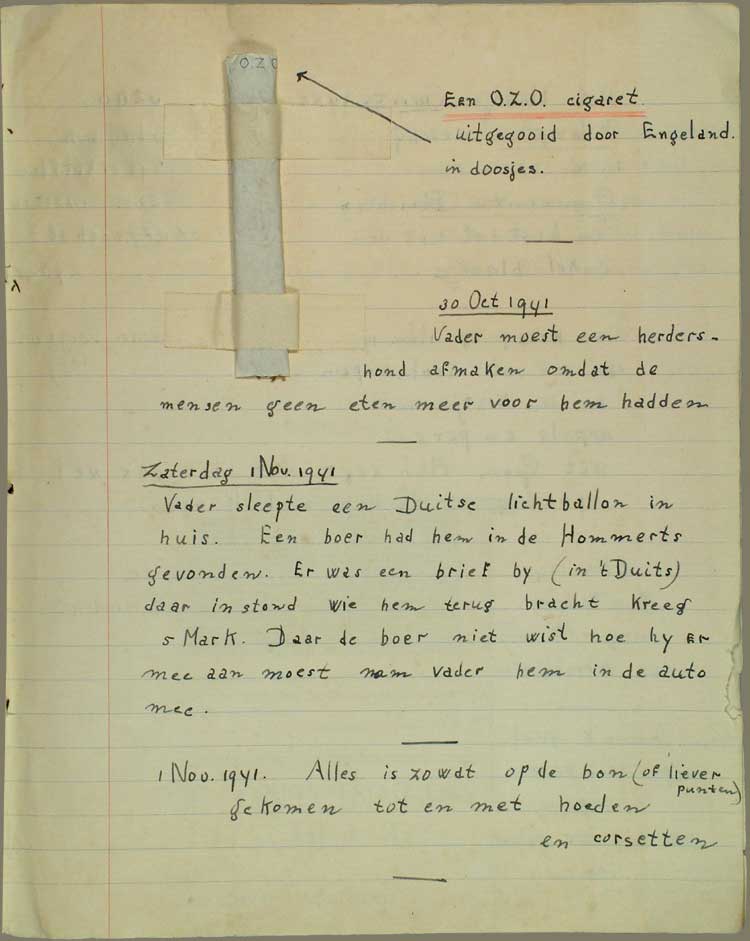 O.Z.O
Een O.Z.O. cigaret.
uitgegooid door Engeland.
in doosjes.
30 Oct 1941
Vader moest een herders-
hond afmaken omdat de
mensen geen eten meer voor hem hadden
Zaterdag 1 Nov. 1941
Vader sleepte een Duitse lichtballon in
huis. Een boer had hem in de Hommerts
gevonden. Er was een brief by (in 't Duits)
daar in stond wie hem terug bracht kreeg
5 Mark. Daar de boer niet wist hoe hy er
mee aan moest nam vader hem in de auto
mee.
1 Nov. 1941. Alles is zowat op de bon (of liever
punten)
gekomen tot en met hoeden
en corsetten